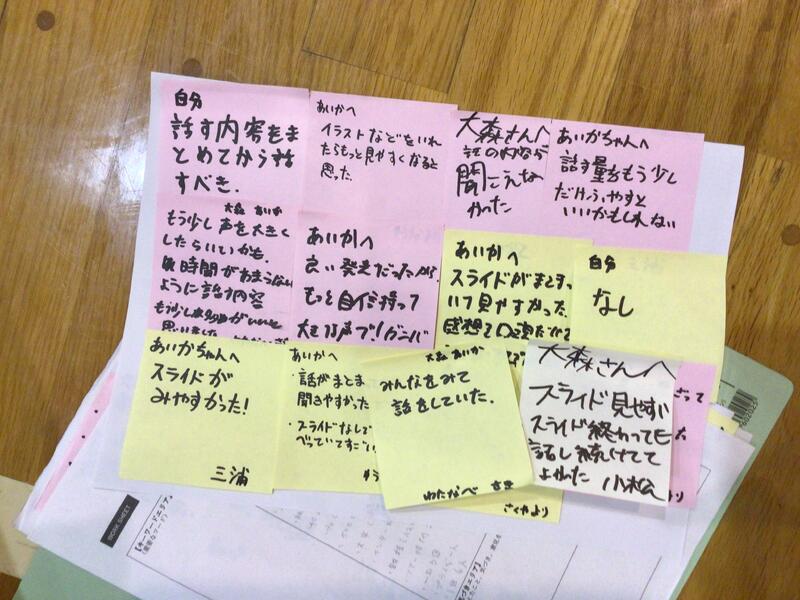 自分
話す内容をま
とめてから話
すべき.
あいかへ
イラストなどをいれ
たらもっと見やすくなると
思った.
大森さんへ
話の内容が
聞こえな
かった
あいかちゃんへ
話す量をもう少し
だけふやすと
いいかもしれない
大森 あいか
もう少し声を大きく
したらいいかも.
時間があまらない
ように話す内容
もう少し
思いました
あいかへ
良い発走だったから.
もっと自信持って
大きな声で!ガンバ
あいかへ
スライドがまとまって
いて見やすかった.
感想も口頭だけで
自分
なし
あいかちゃんへ
スライドが
みやすかった!
三浦
あいかへ
・話がまとま
聞きやすかった
・スライドなしで
べっていてすごい
大森 あいか
みんなをみて
話をしていた.
わたなべ
さくやより
大森さんへ
スライド見やすい
スライド終わっても
話し続けてて
よかった 小松
より
WORK SHEET
【キーワードエリア】
(重要なワード)